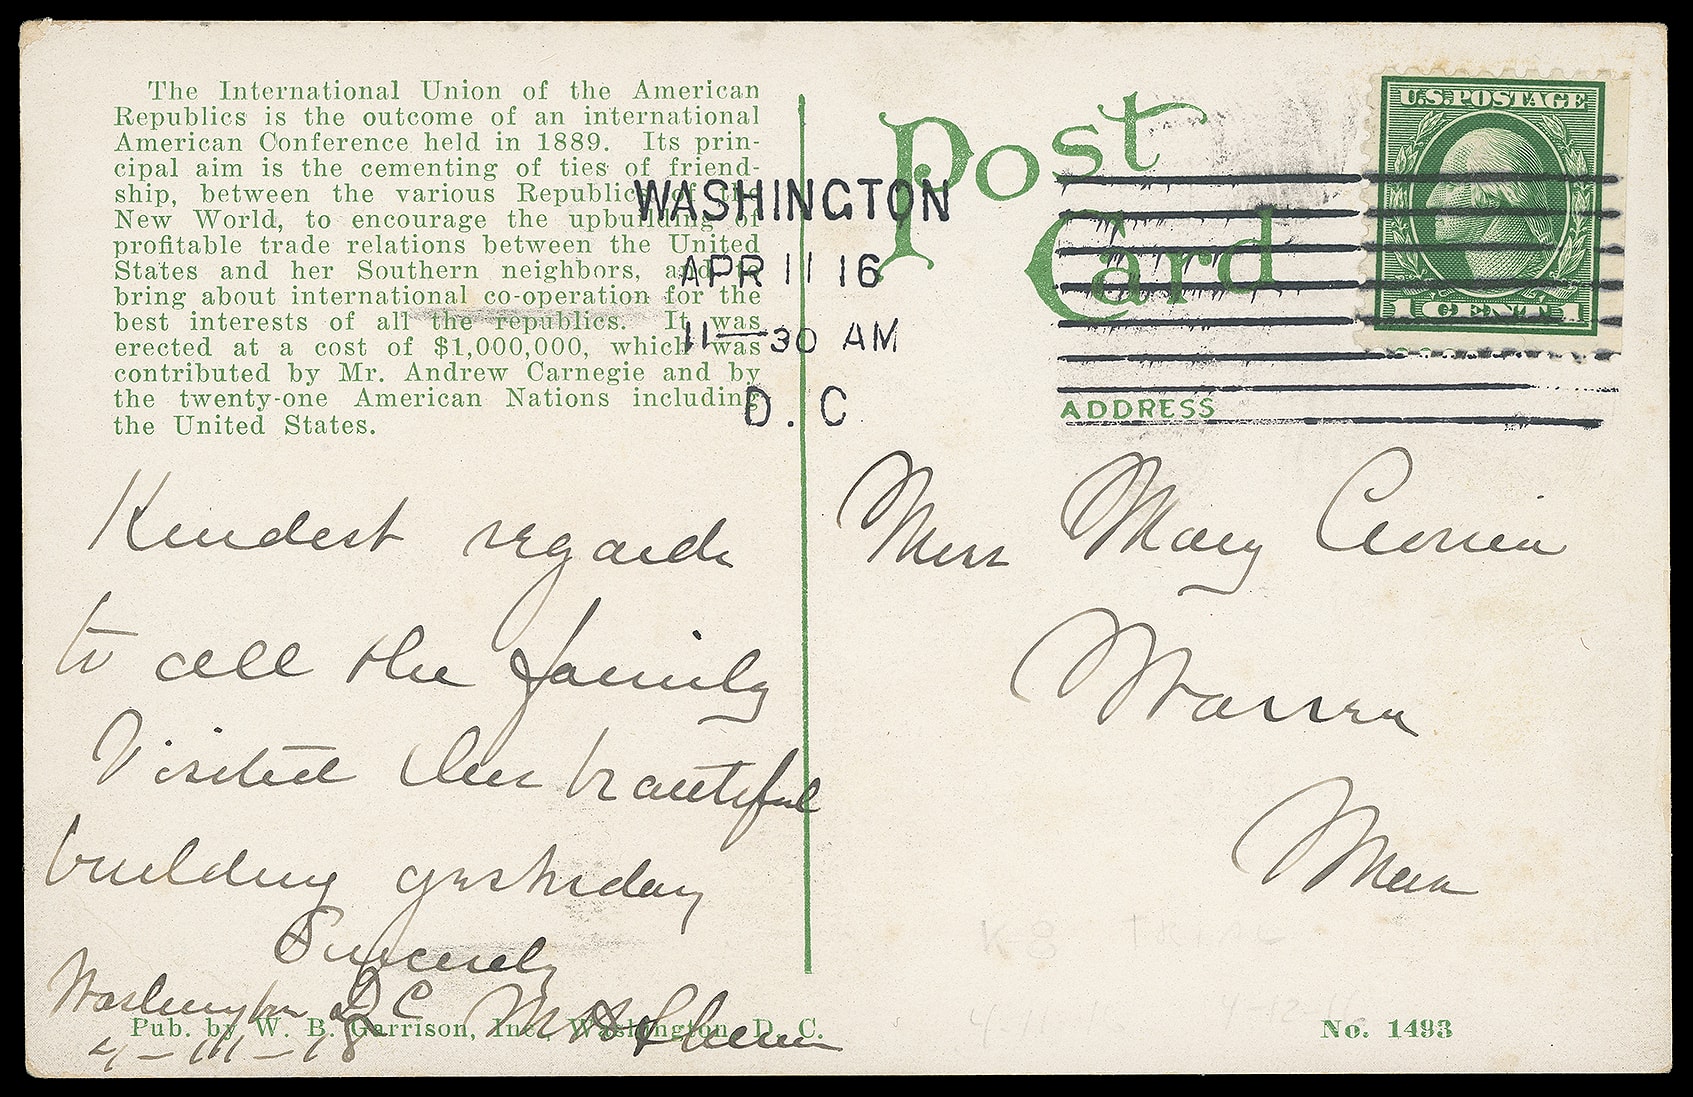 The International Union of the American
Republics is the outcome of an international
American Conference held in 1889. Its prin-
cipal aim is the cementing of ties of friend-
ship, between the various Republics of the
New World, to encourage the upbuilding of
profitable trade relations between the United
States and her Southern neighbors, and to
bring about international co-operation for the
best interests of all the republics. It was
erected at a cost of $1,000,000, which was
contributed by Mr. Andrew Carnegie and by
the twenty-one American Nations including
the United States.
Post
Card
WASHINGTON
APR 11 16
11—30 AM
D. C
U.S. POSTAGE
1 CENT 1
ADDRESS
Kindest regards
to all the family
Visited this beautiful
building yesterday
Sincerely
Washington D C
M
Miss Mary
Warren
Mass
Pub. by W. B. Garrison, Inc., Washington, D. C.
No. 1493